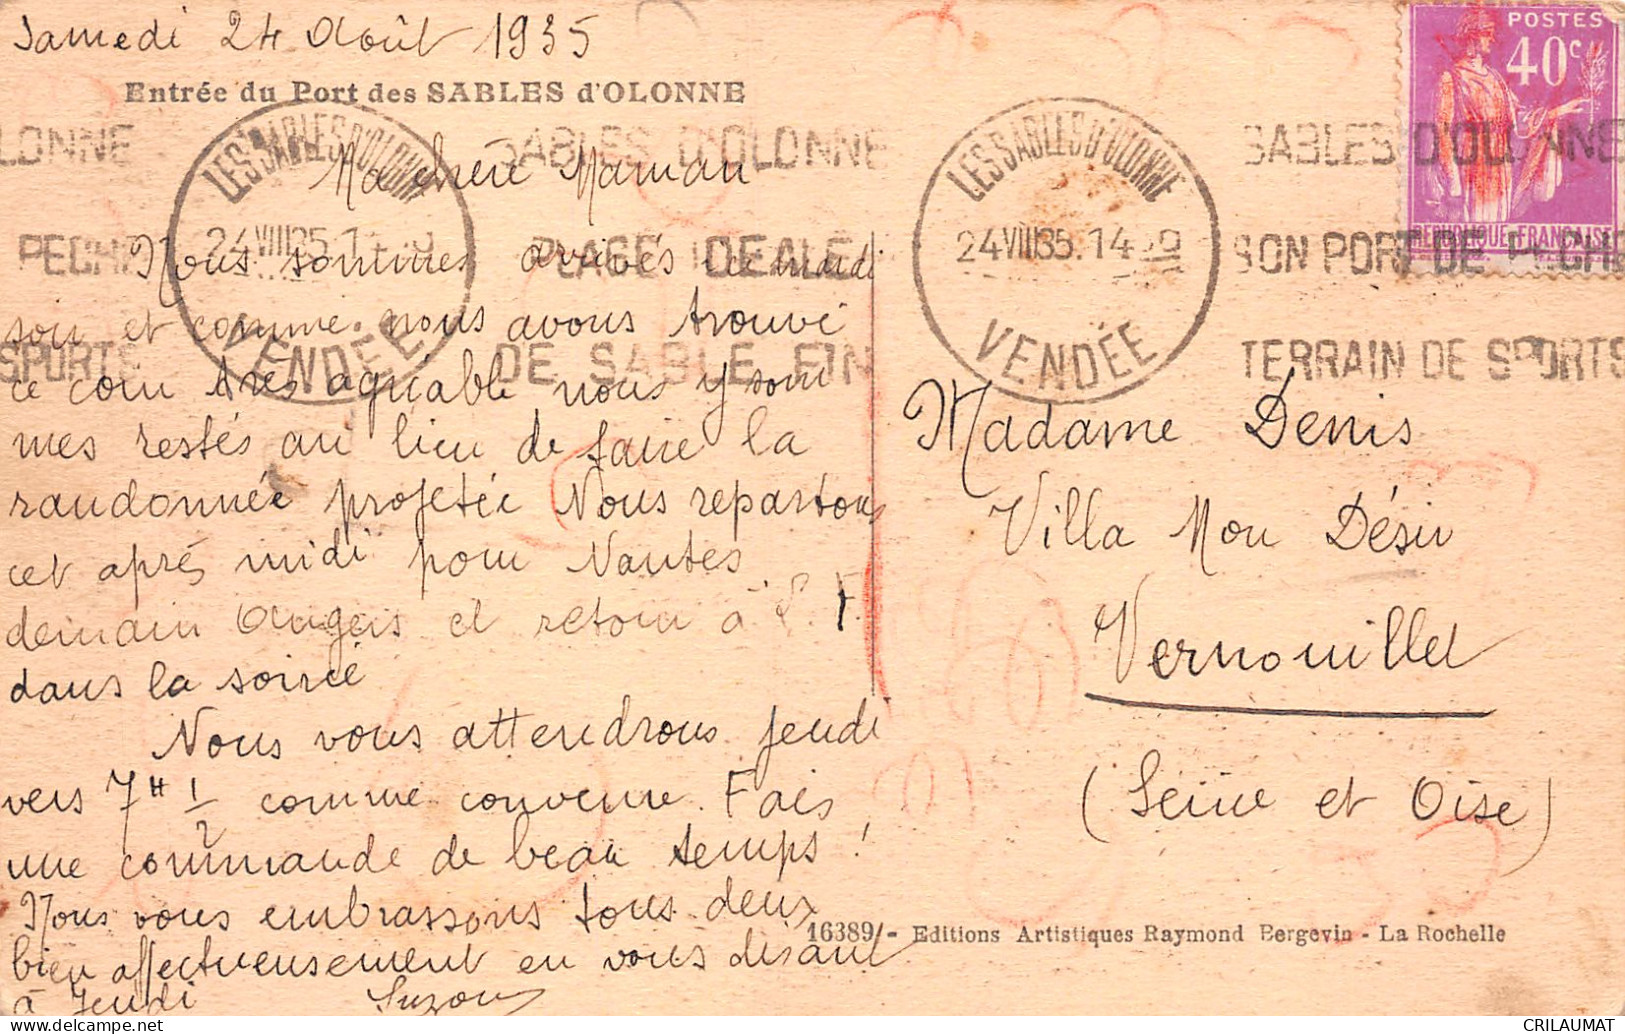 Samedi 24 Août 1935
Entrée du Port des SABLES d'OLONNE
Ma chère Maman
Nous sommes arrivés ici mardi
soir et comme nous avons trouvé
ce coin très agréable nous y som
mes restés au lieu de faire la
randonnée projetée Nous repartons
cet après midi pour Nantes
demain Angers et retour à
dans la soirée
Nous vous attendrons jeudi
vers 7H 1/2 comme convenu. Fais
une commande de beau temps !
Nous vous embrassons tous deux
bien affectueusement en vous disant
à Jeudi Suzon
LES SABLES D'OLONNE
24 VIII 35
VENDÉE
OLONNE
PECHE
SPORTS
SABLES D'OLONNE
PLAGE IDEALE
DE SABLE FIN
LES SABLES D'OLONNE
24 VIII 35. 14
VENDÉE
SABLES D'OLONNE
SON PORT DE PECHE
TERRAIN DE SPORTS
POSTES
40c
REPUBLIQUE FRANCAISE
Madame Denis
Villa Mon Désir
Vernouillet
(Seine et Oise)
16389 - Editions Artistiques Raymond Bergevin - La Rochelle
CRILAUMAT